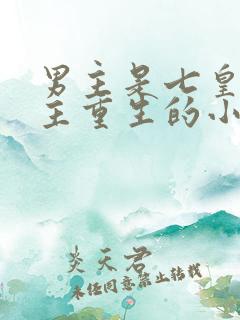 男主是七皇
主重生的小
炎天君
未经同意禁止转载